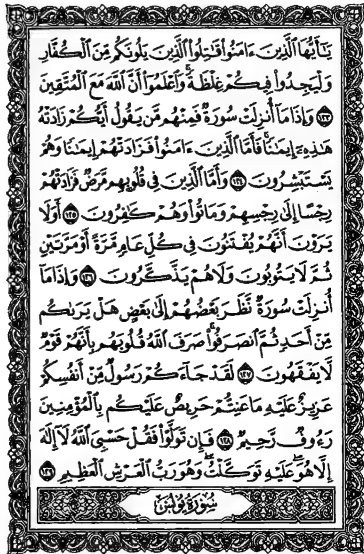 يَٰٓأَيُّهَا ٱلَّذِينَ ءَامَنُوا۟ قَٰتِلُوا۟ ٱلَّذِينَ يَلُونَكُم مِّنَ ٱلْكُفَّارِ
وَلْيَجِدُوا۟ فِيكُمْ غِلْظَةً ۚ وَٱعْلَمُوٓا۟ أَنَّ ٱللَّهَ مَعَ ٱلْمُتَّقِينَ
﴿١٢٣﴾ وَإِذَا مَآ أُنزِلَتْ سُورَةٌ فَمِنْهُم مَّن يَقُولُ أَيُّكُمْ زَادَتْهُ
هَٰذِهِۦٓ إِيمَٰنًا ۚ فَأَمَّا ٱلَّذِينَ ءَامَنُوا۟ فَزَادَتْهُمْ إِيمَٰنًا وَهُمْ
يَسْتَبْشِرُونَ ﴿١٢٤﴾ وَأَمَّا ٱلَّذِينَ فِى قُلُوبِهِم مَّرَضٌ فَزَادَتْهُمْ
رِجْسًا إِلَىٰ رِجْسِهِمْ وَمَاتُوا۟ وَهُمْ كَٰفِرُونَ ﴿١٢٥﴾ أَوَلَا
يَرَوْنَ أَنَّهُمْ يُفْتَنُونَ فِى كُلِّ عَامٍ مَّرَّةً أَوْ مَرَّتَيْنِ
ثُمَّ لَا يَتُوبُونَ وَلَا هُمْ يَذَّكَّرُونَ ﴿١٢٦﴾ وَإِذَا مَآ
أُنزِلَتْ سُورَةٌ نَّظَرَ بَعْضُهُمْ إِلَىٰ بَعْضٍ هَلْ يَرَىٰكُم
مِّنْ أَحَدٍ ثُمَّ ٱنصَرَفُوا۟ ۚ صَرَفَ ٱللَّهُ قُلُوبَهُم بِأَنَّهُمْ قَوْمٌ
لَّا يَفْقَهُونَ ﴿١٢٧﴾ لَقَدْ جَآءَكُمْ رَسُولٌ مِّنْ أَنفُسِكُمْ
عَزِيزٌ عَلَيْهِ مَا عَنِتُّمْ حَرِيصٌ عَلَيْكُم بِٱلْمُؤْمِنِينَ
رَءُوفٌ رَّحِيمٌ ﴿١٢٨﴾ فَإِن تَوَلَّوْا۟ فَقُلْ حَسْبِىَ ٱللَّهُ لَآ إِلَٰهَ
إِلَّا هُوَ ۖ عَلَيْهِ تَوَكَّلْتُ ۖ وَهُوَ رَبُّ ٱلْعَرْشِ ٱلْعَظِيمِ ﴿١٢٩﴾
سُورَةُ يُونُسَ